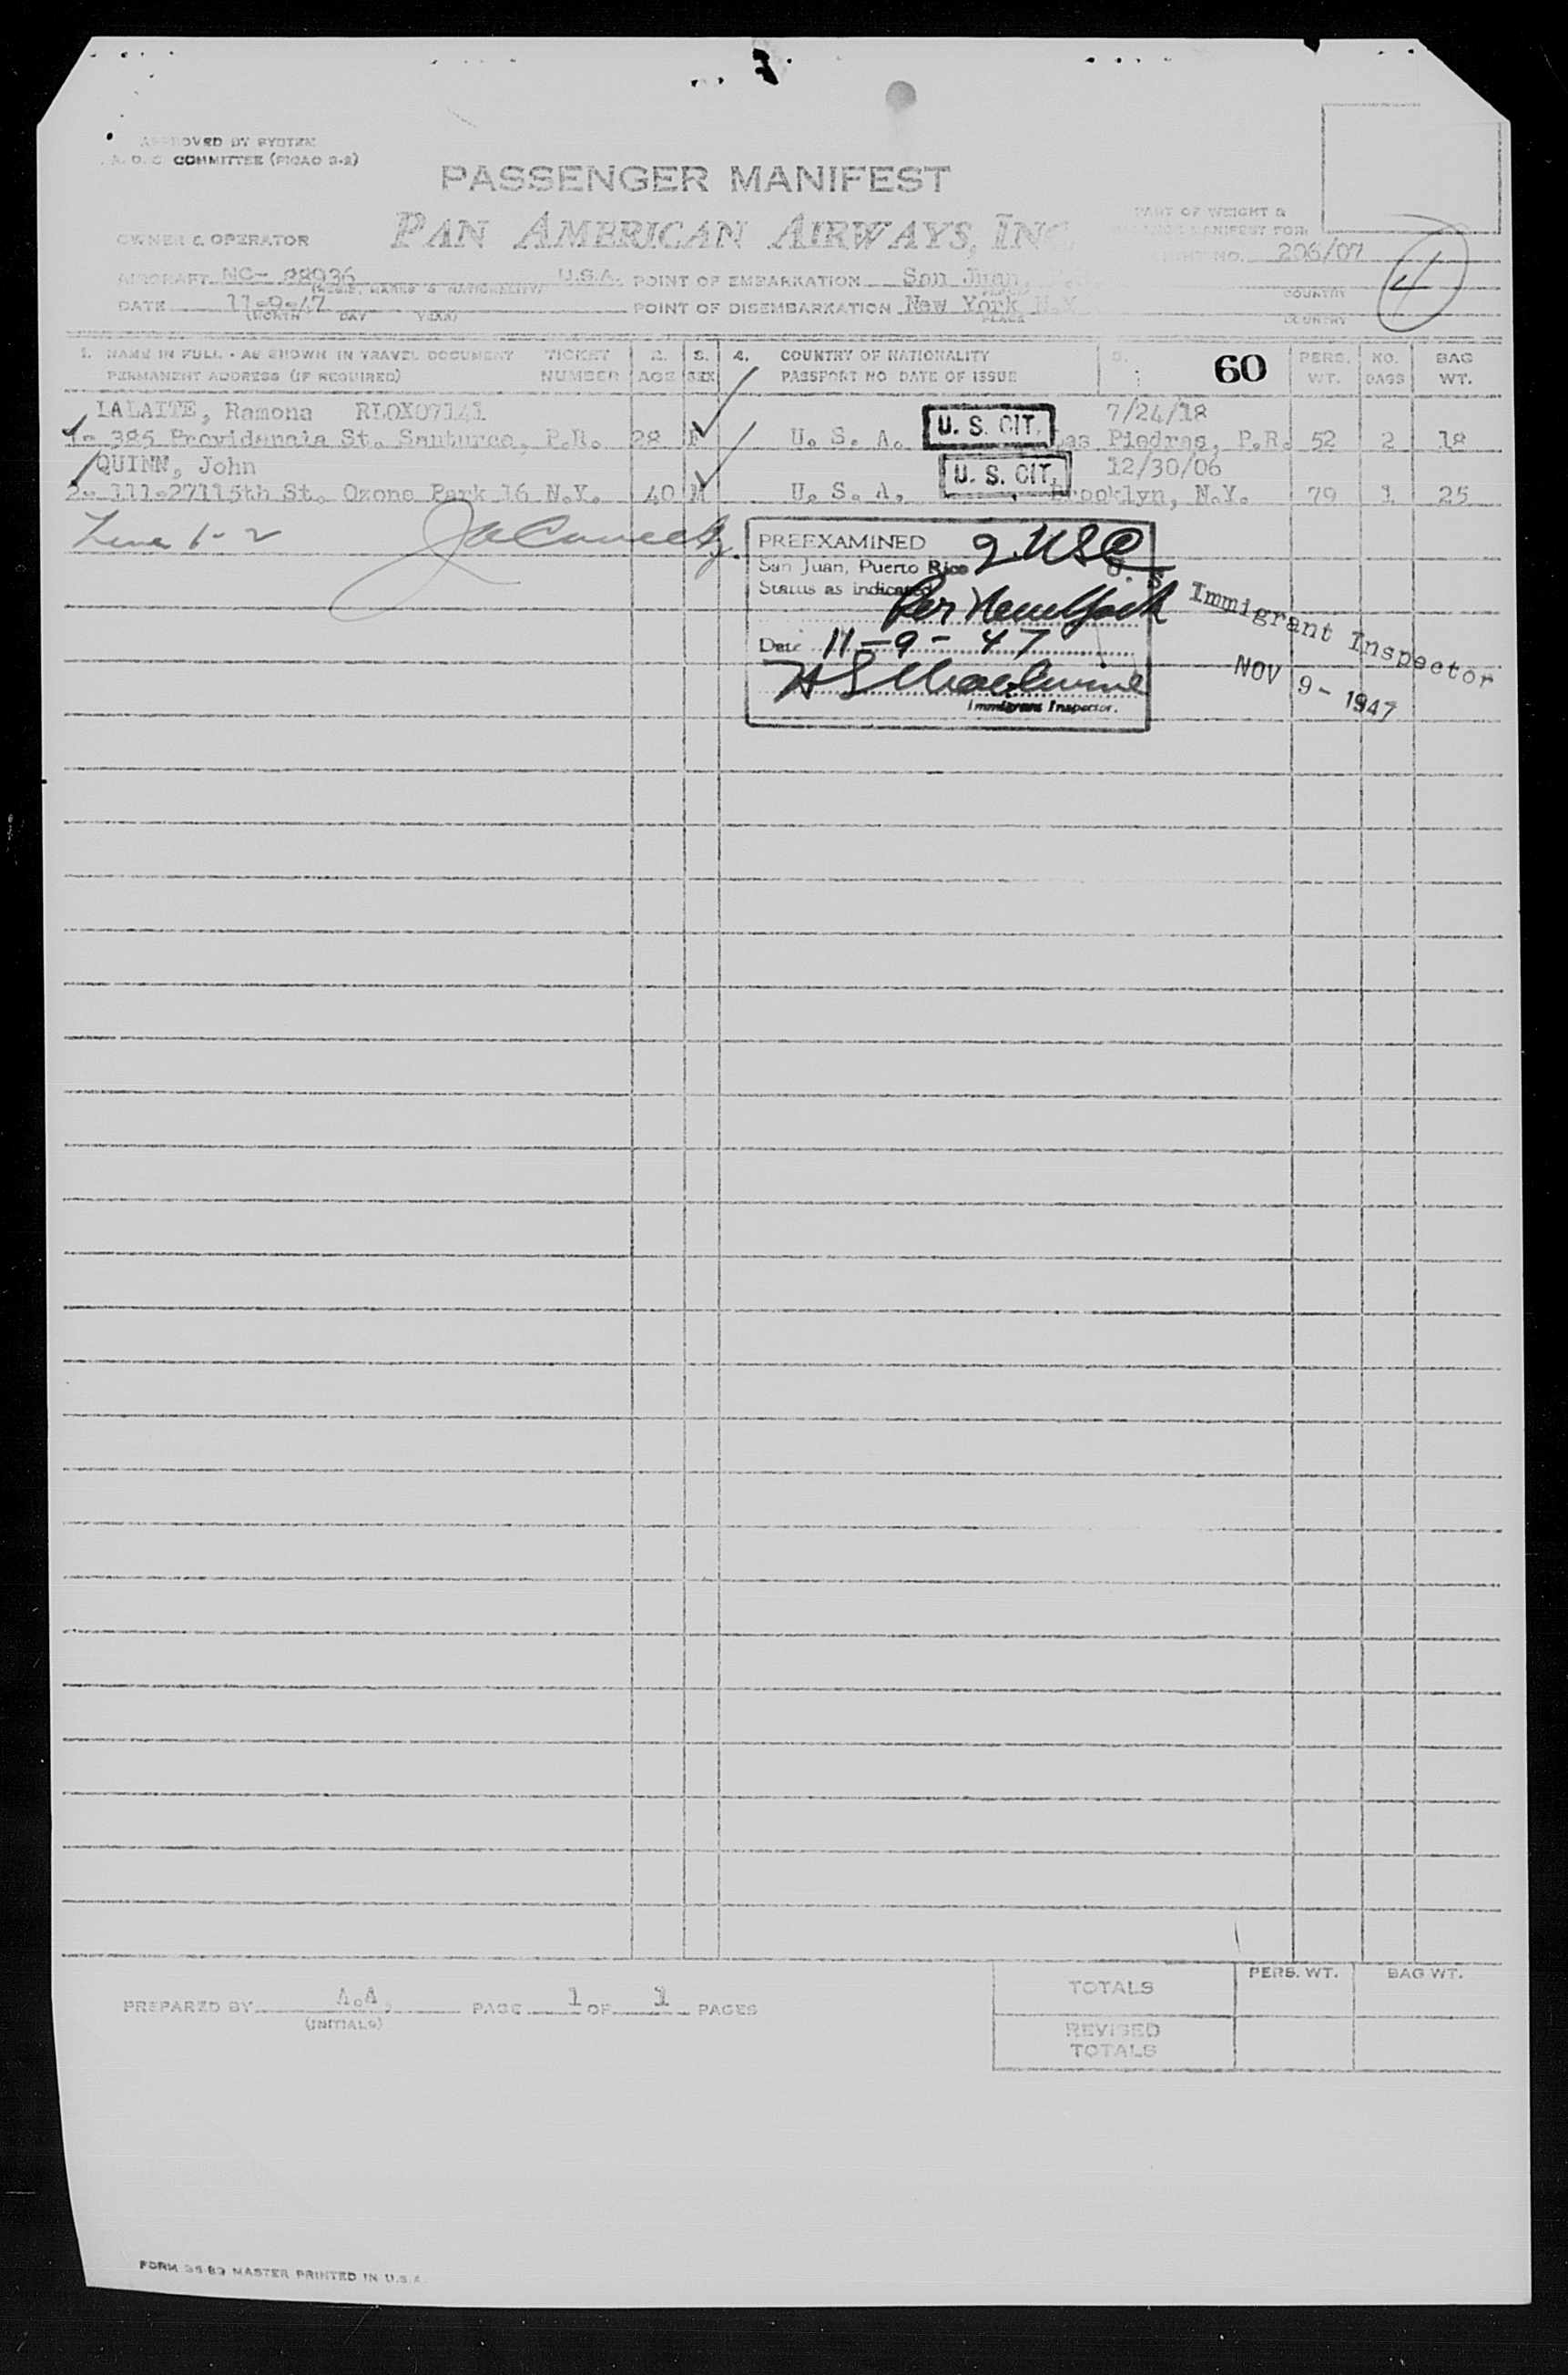 APPROVED BY SYSTEM
A. O. C. COMMITTEE (PICAO 3-2)
PASSENGER MANIFEST
PAN AMERICAN AIRWAYS, INC.
OWNER & OPERATOR
PART OF WEIGHT &
BALANCE MANIFEST FOR
FLIGHT NO. 206/07
4
AIRCRAFT NC- 88936 U.S.A. POINT OF EMBARKATION San Juan, P.R.
(REGIS. MARKS & NATIONALITY) PLACE COUNTRY
DATE 11-9-47 POINT OF DISEMBARKATION New York N.Y.
(MONTH DAY YEAR) PLACE COUNTRY
1. NAME IN FULL - AS SHOWN IN TRAVEL DOCUMENT TICKET 2. 3. 4. COUNTRY OF NATIONALITY 5. 60 PERS. NO. BAG
PERMANENT ADDRESS (IF REQUIRED) NUMBER AGE SEX PASSPORT NO DATE OF ISSUE WT. BAGS WT.
LALAITE, Ramona RLOX07141 7/24/18
1- 385 St. Santurce, P.R. 28 F U. S. A. U. S. CIT. Las Piedras, P.R. 52 2 18
QUINN, John 12/30/06
2- 111-27115th St. Ozone Park 16 N.Y. 40 M U. S. A. U. S. CIT. Brooklyn, N.Y. 79 1 25
Line 1-2
PREEXAMINED 2 USC
San Juan, Puerto Rico
Status as indicated
Per New York
Date 11-9-47
Immigrant Inspector.
U. S. Immigrant Inspector
NOV 9- 1947
PREPARED BY A.A. PAGE 1 OF 1 PAGES
(INITIALS)
PERS. WT. BAG WT.
TOTALS
REVISED
TOTALS
FORM MASTER PRINTED IN U.S.A.